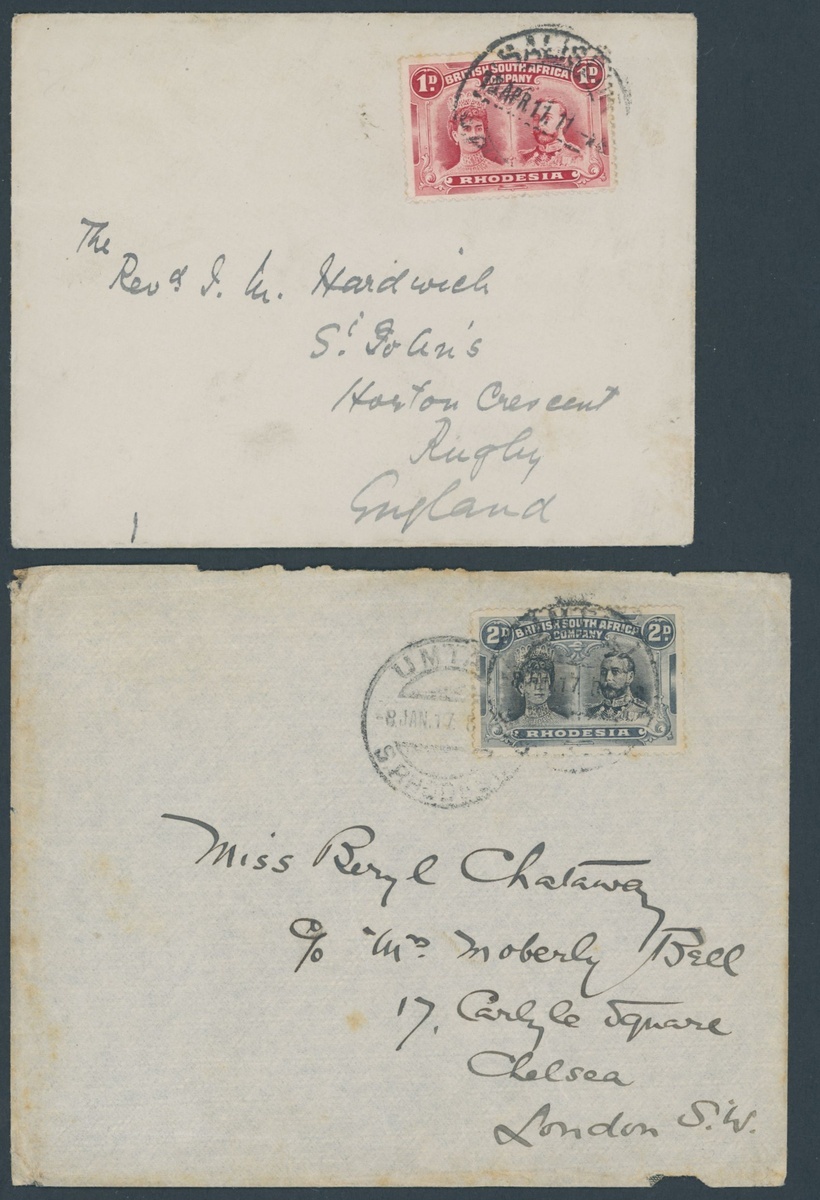 1D BRITISH SOUTH AFRICA 1D
COMPANY
APR 11
RHODESIA
The
Revd J. M. Hardwich
St John's
Horton Crescent
Rugby
England
2D BRITISH SOUTH AFRICA 2D
COMPANY
RHODESIA
-8 JAN.17
Miss Beryl Chataway
c/o Mrs Moberly Bell
17, Carlyle Square
Chelsea
London S.W.